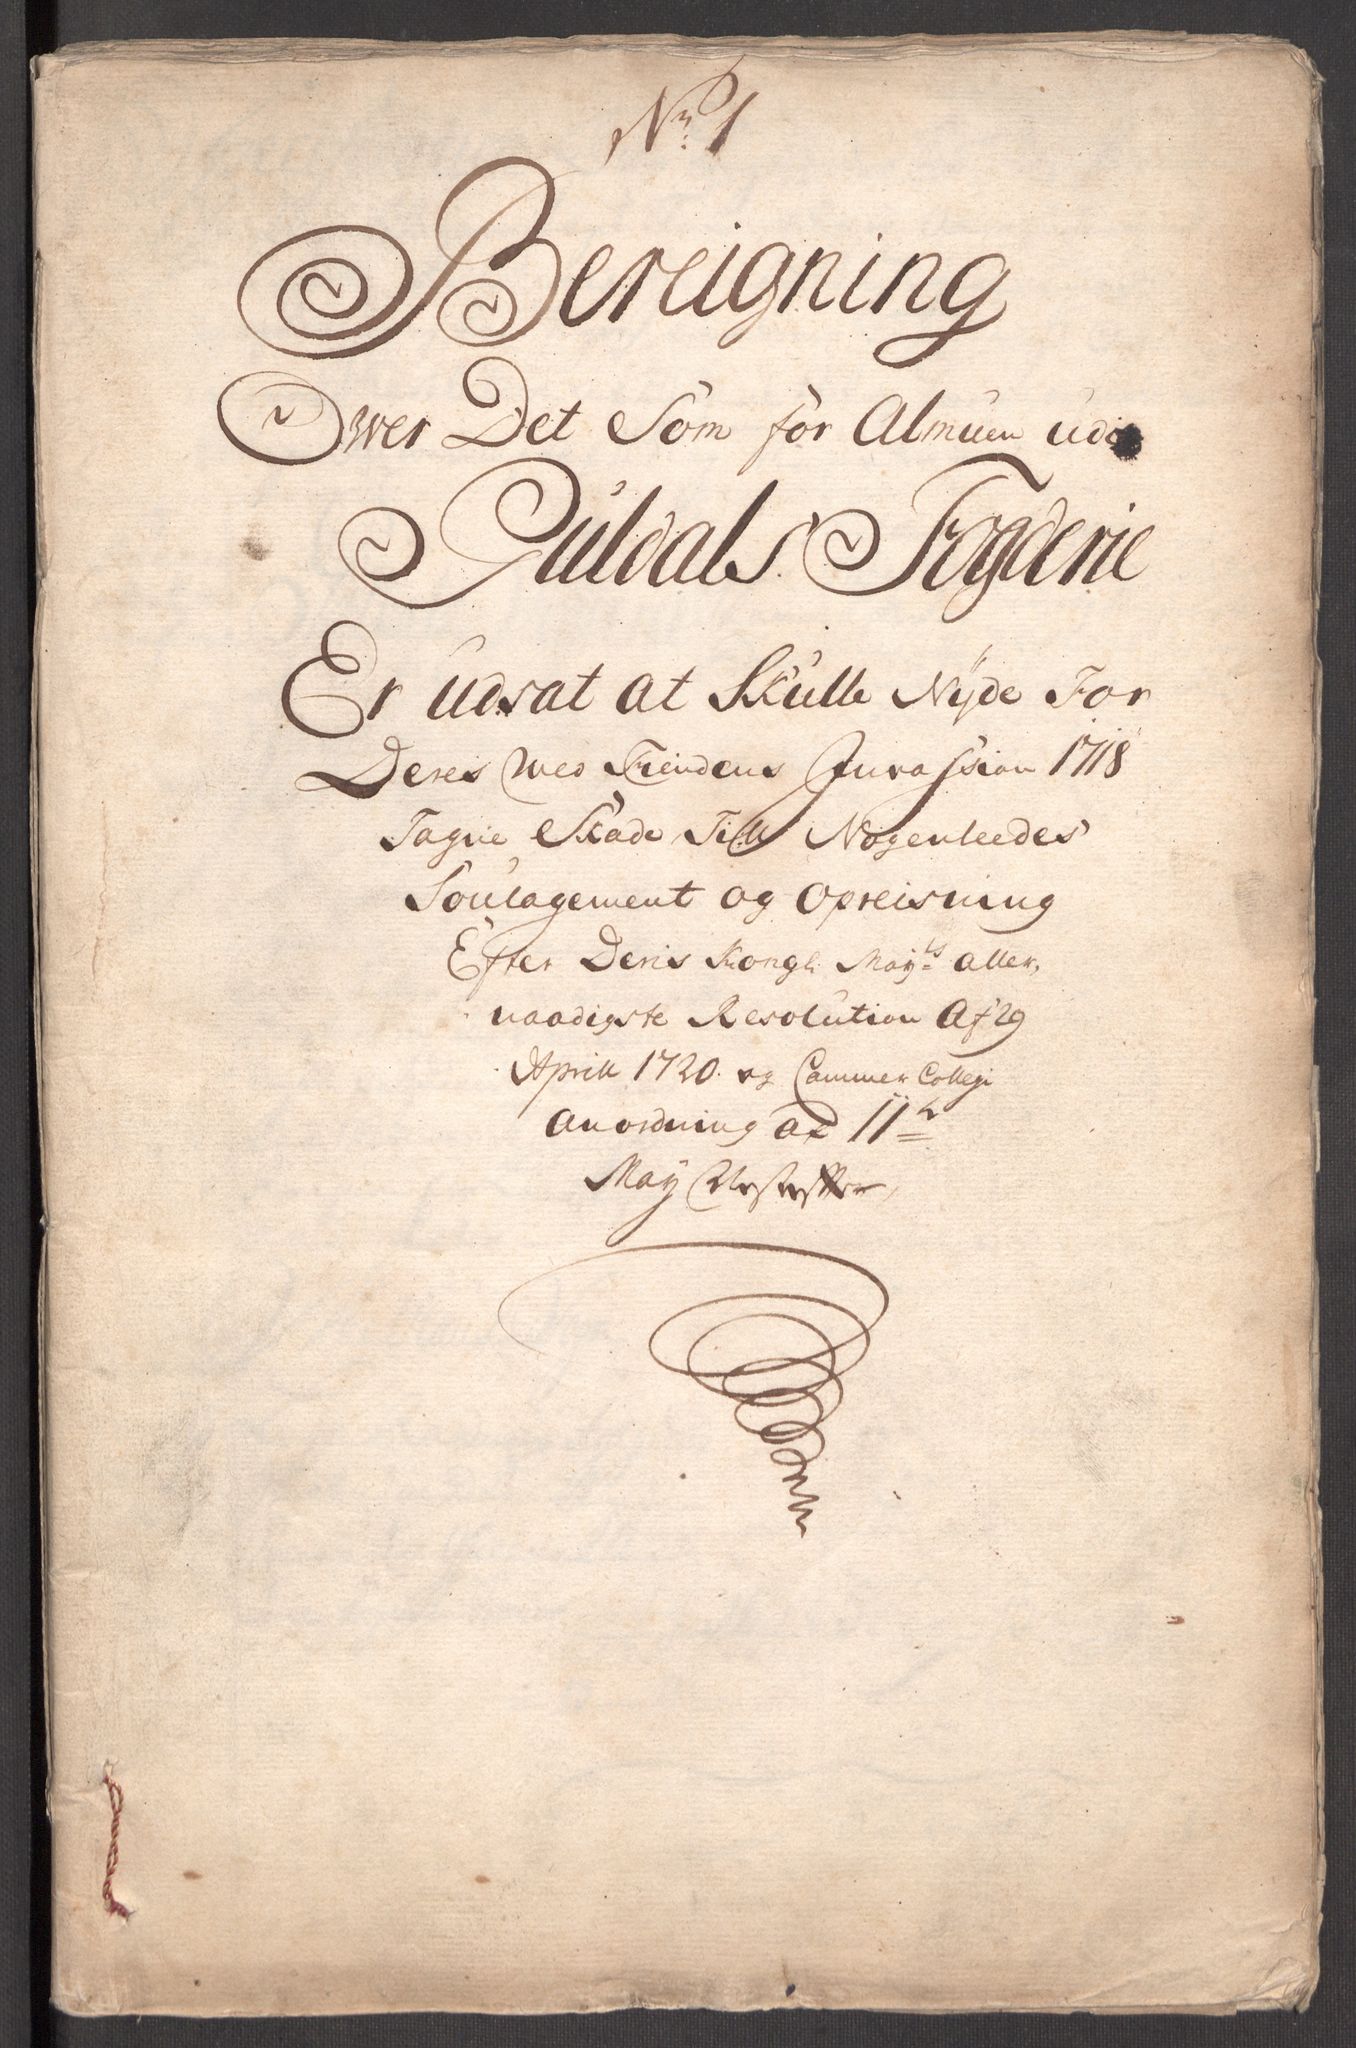 No. 1
Bereigning
Over Det Som for Almuen udi
Guldals Fogderie
Er udsat at Skulle Nyde For
Deres wed Fiendens Invassion 1718
Tagne Skade Till Nogenleedes
Soulagement og opreisning
Efter Deris Kongl: Mayts aller,
naadigste Resolution Af 29
Aprill 1720 og Cammer Collegi
anordning af 11te
May